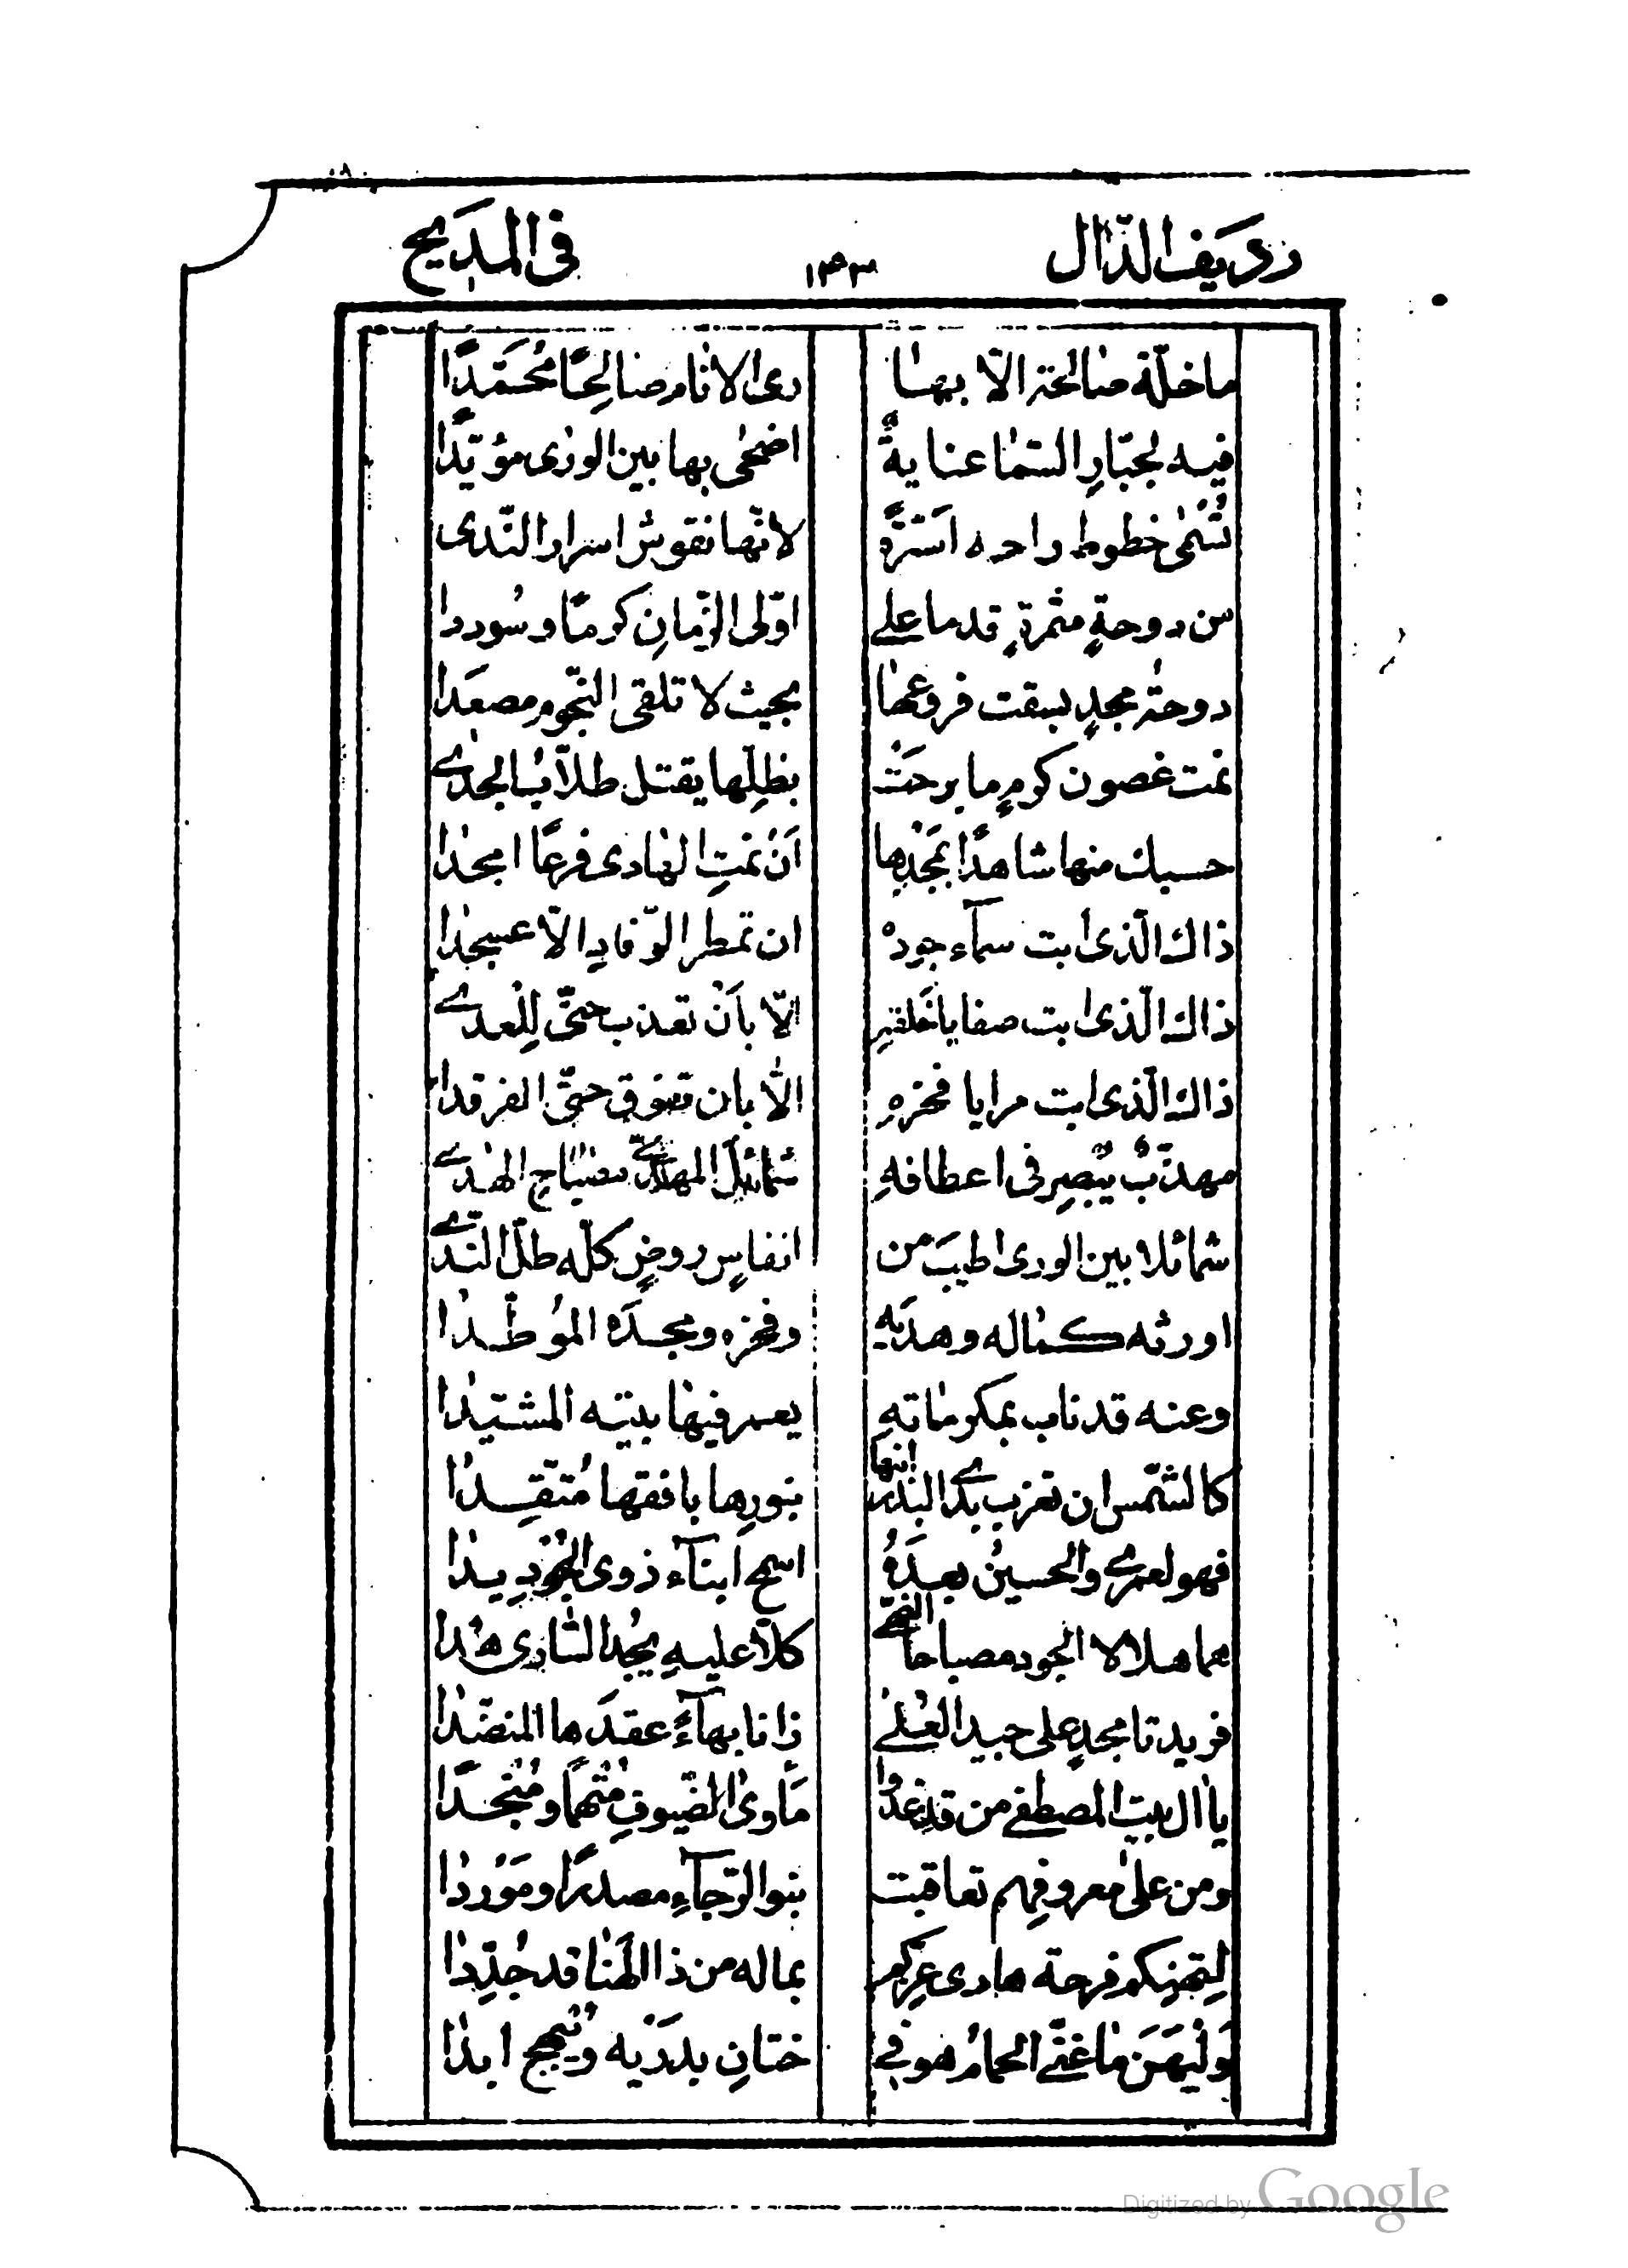 رديف الدّال ١٣٣ فى المديح
ما خلّة صالحة الّا بها رءى الانام صالحًا محمّدًا
فيه لجبّارِ السّما عنايةٌ اضحى بها بين الورى مؤيّدًا
تُسْمى خطوط راحه اَسَرّةً لانّها نقوش اسرار النّدى
من دوحةٍ مثمرةٍ قدما على اوّلى الزّمانِ كرمًا وسوددا
دوحة مجدٍ بسقت فروعها بحيث لا تلقى النّجوم مصعَدا
نمت غصون كرمٍ ما برحَتْ بظلِها يقتل طلّاب الجدى
حسبك منها شاهدًا بمجدِها اَنْ نمتِ الهادى فرعًا امجدا
ذاك الّذى ابت سمآء جوده ان تمطر الوفاد الّا عسجدا
ذاك الّذى ابت صفايا خَلقهِ الّا باَنْ تعذب حتّى لِلْعدى
ذاك الّذى ابت مرايا فخرهِ الّا بان تفوق حتّى الفرقدا
مهذّبٌ يُبْصِر فى اعطافهِ شمائل المهدىّ مصباحِ الهدى
شمائلا بين الورى اطيبَ من انفاسِ روضٍ كلّه طلّ النّدى
اورثه كماله وهديَه وفخره ومجدَه الموُطّدا
وعنه قد ناب بمكرماتهِ يعمر فيها بيته المشيّدا
كالشّمس ان تغرب بدى البدر انها بنورِها بافقها مُتّقِدا
فهو لعمرى والحسينُ بعدَهُ اسمح ابنآء ذوى الجُودِ يدا
هما هلالا الجود مصباحا الدّجى كلّا عليهِ يجُد السّارى هُدا
فريدتا مجدٍ على جيد العُلىٰ زانا بهآءً عقدَها المنضّدا
يا ال بيت المصطفى من قد غدوا مأوى الضّيوفِ مُتْهمًا ومُنْجدًا
ومن على معروفِهم تعاقبت بنوا الرّجآءِ مصدرًا ومَوْردا
لِتهنِكم فرحة هادى عِزكم بماله من ذا الهنا قد جُدِّدا
وَلْيَهَن ما غنّى الحمامُ هو فى ختانِ بدرَيْه ويُبْهج ابدا
Digitized by Google